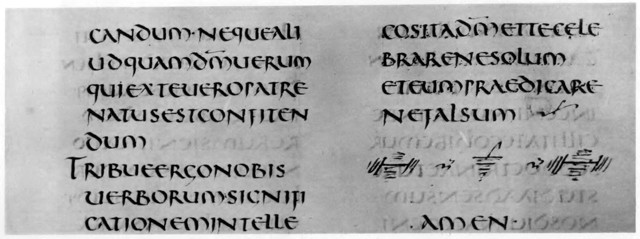 CANDUM·NEQUEALI
UDQUAMD̄M̄UERUM
QUIEXTEUEROPATRE
NATUSESTCONFITEN
DUM
TRIBUEERGONOBIS
UERBORUMSIGNIFI
CATIONEMINTELLE
COSITAD̄M̄ETTECĘLE
BRARENESOLUM
ETEUMPRAEDICARE
NEFALSUM
·AMEN·